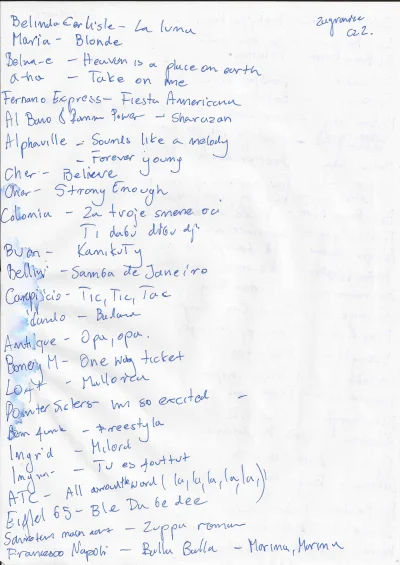 Belinda Carlisle - La luna
Maria - Blonde
Belinda-e - Heaven is a place on earth
a-ha - Take on me
Fernano Express - Fiesta Americana
Al Bano & Power - Sharazan
Alphaville - Sounds like a melody
- Forever young
Cher - Believe
Cher - Strong Enough
Colonia - Za tvoje smene oci
Ti da bu di bu di
- Kamikuty
Bellini - Samba de Janeiro
- Tic, Tic, Tac
Antique - Opa, opa.
Boney M - One way ticket
Loft - Mallorca
Pointer Sisters - Im so excited -
Bom funk - Freestyla
Ingrid - Milord
Ingrid - Tu es fouttut
ATC - All around the word (la, la, la, la, la,)
Eiffel 65 - Ble Da be dee
- Zuppa romana
Francesco Napoli - Bulla Bulla - Marina, Marina